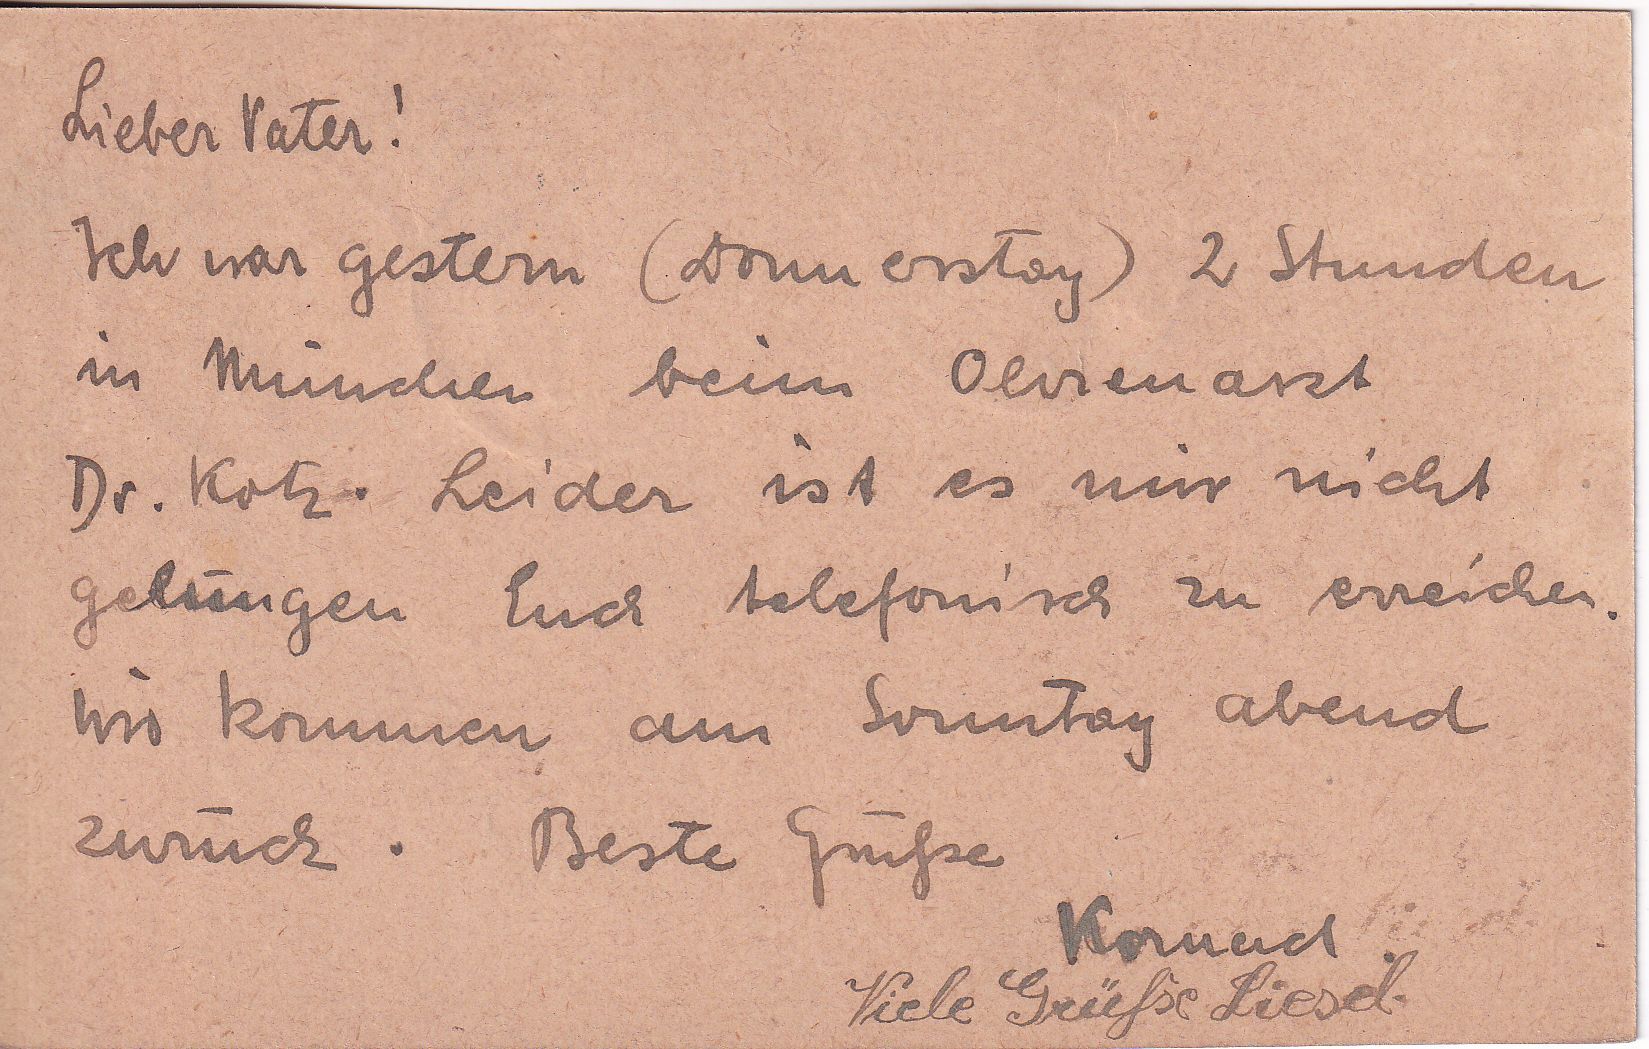 Lieber Vater!
Ich war gestern (Donnerstag) 2 Stunden
in München beim Ohrenarzt
Dr. Kotz. Leider ist es mir nicht
gelungen Euch telefonisch zu erreichen.
Wir kommen am Sonntag abend
zurück. Beste Grüße
Konrad
Viele Grüße Liesel